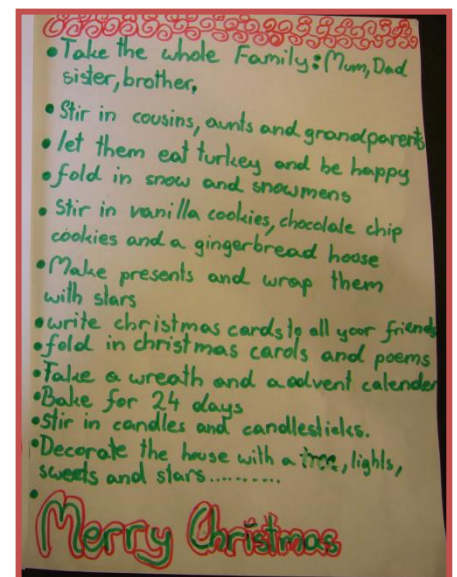 • Take the whole Family: Mum, Dad
sister, brother,
• Stir in cousins, aunts and grandparents
• let them eat turkey and be happy
• fold in snow and snowmens
• Stir in vanilla cookies, chocolate chip
cookies and a gingerbread house
• Make presents and wrap them
with stars
• write christmas cards to all your friends
• fold in christmas carols and poems
• Take a wreath and a advent calender
• Bake for 24 days
• Stir in candles and candlesticks.
• Decorate the house with a tree, lights,
sweets and stars..........
•
Merry Christmas